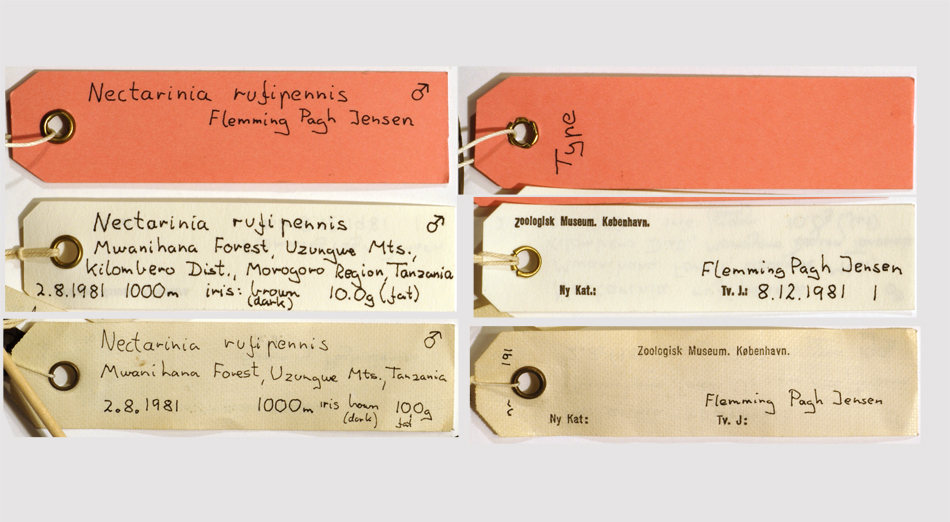 Nectarinia rufipennis ♂
Flemming Pagh Jensen
Type
Nectarinia rufipennis ♂
Mwanihana Forest, Uzungwe Mts.,
Kilombero Dist., Morogoro Region, Tanzania
2.8.1981 1000m iris: brown 10.0g (fat)
(dark)
Zoologisk Museum. København.
Flemming Pagh Jensen
Ny Kat.: Tv. J.: 8.12.1981 1
Nectarinia rufipennis ♂
Mwanihana Forest, Uzungwe Mts., Tanzania
2.8.1981 1000m iris brown 100g
(dark) fat
Zoologisk Museum. København.
Flemming Pagh Jensen
Ny Kat: Tv. J: